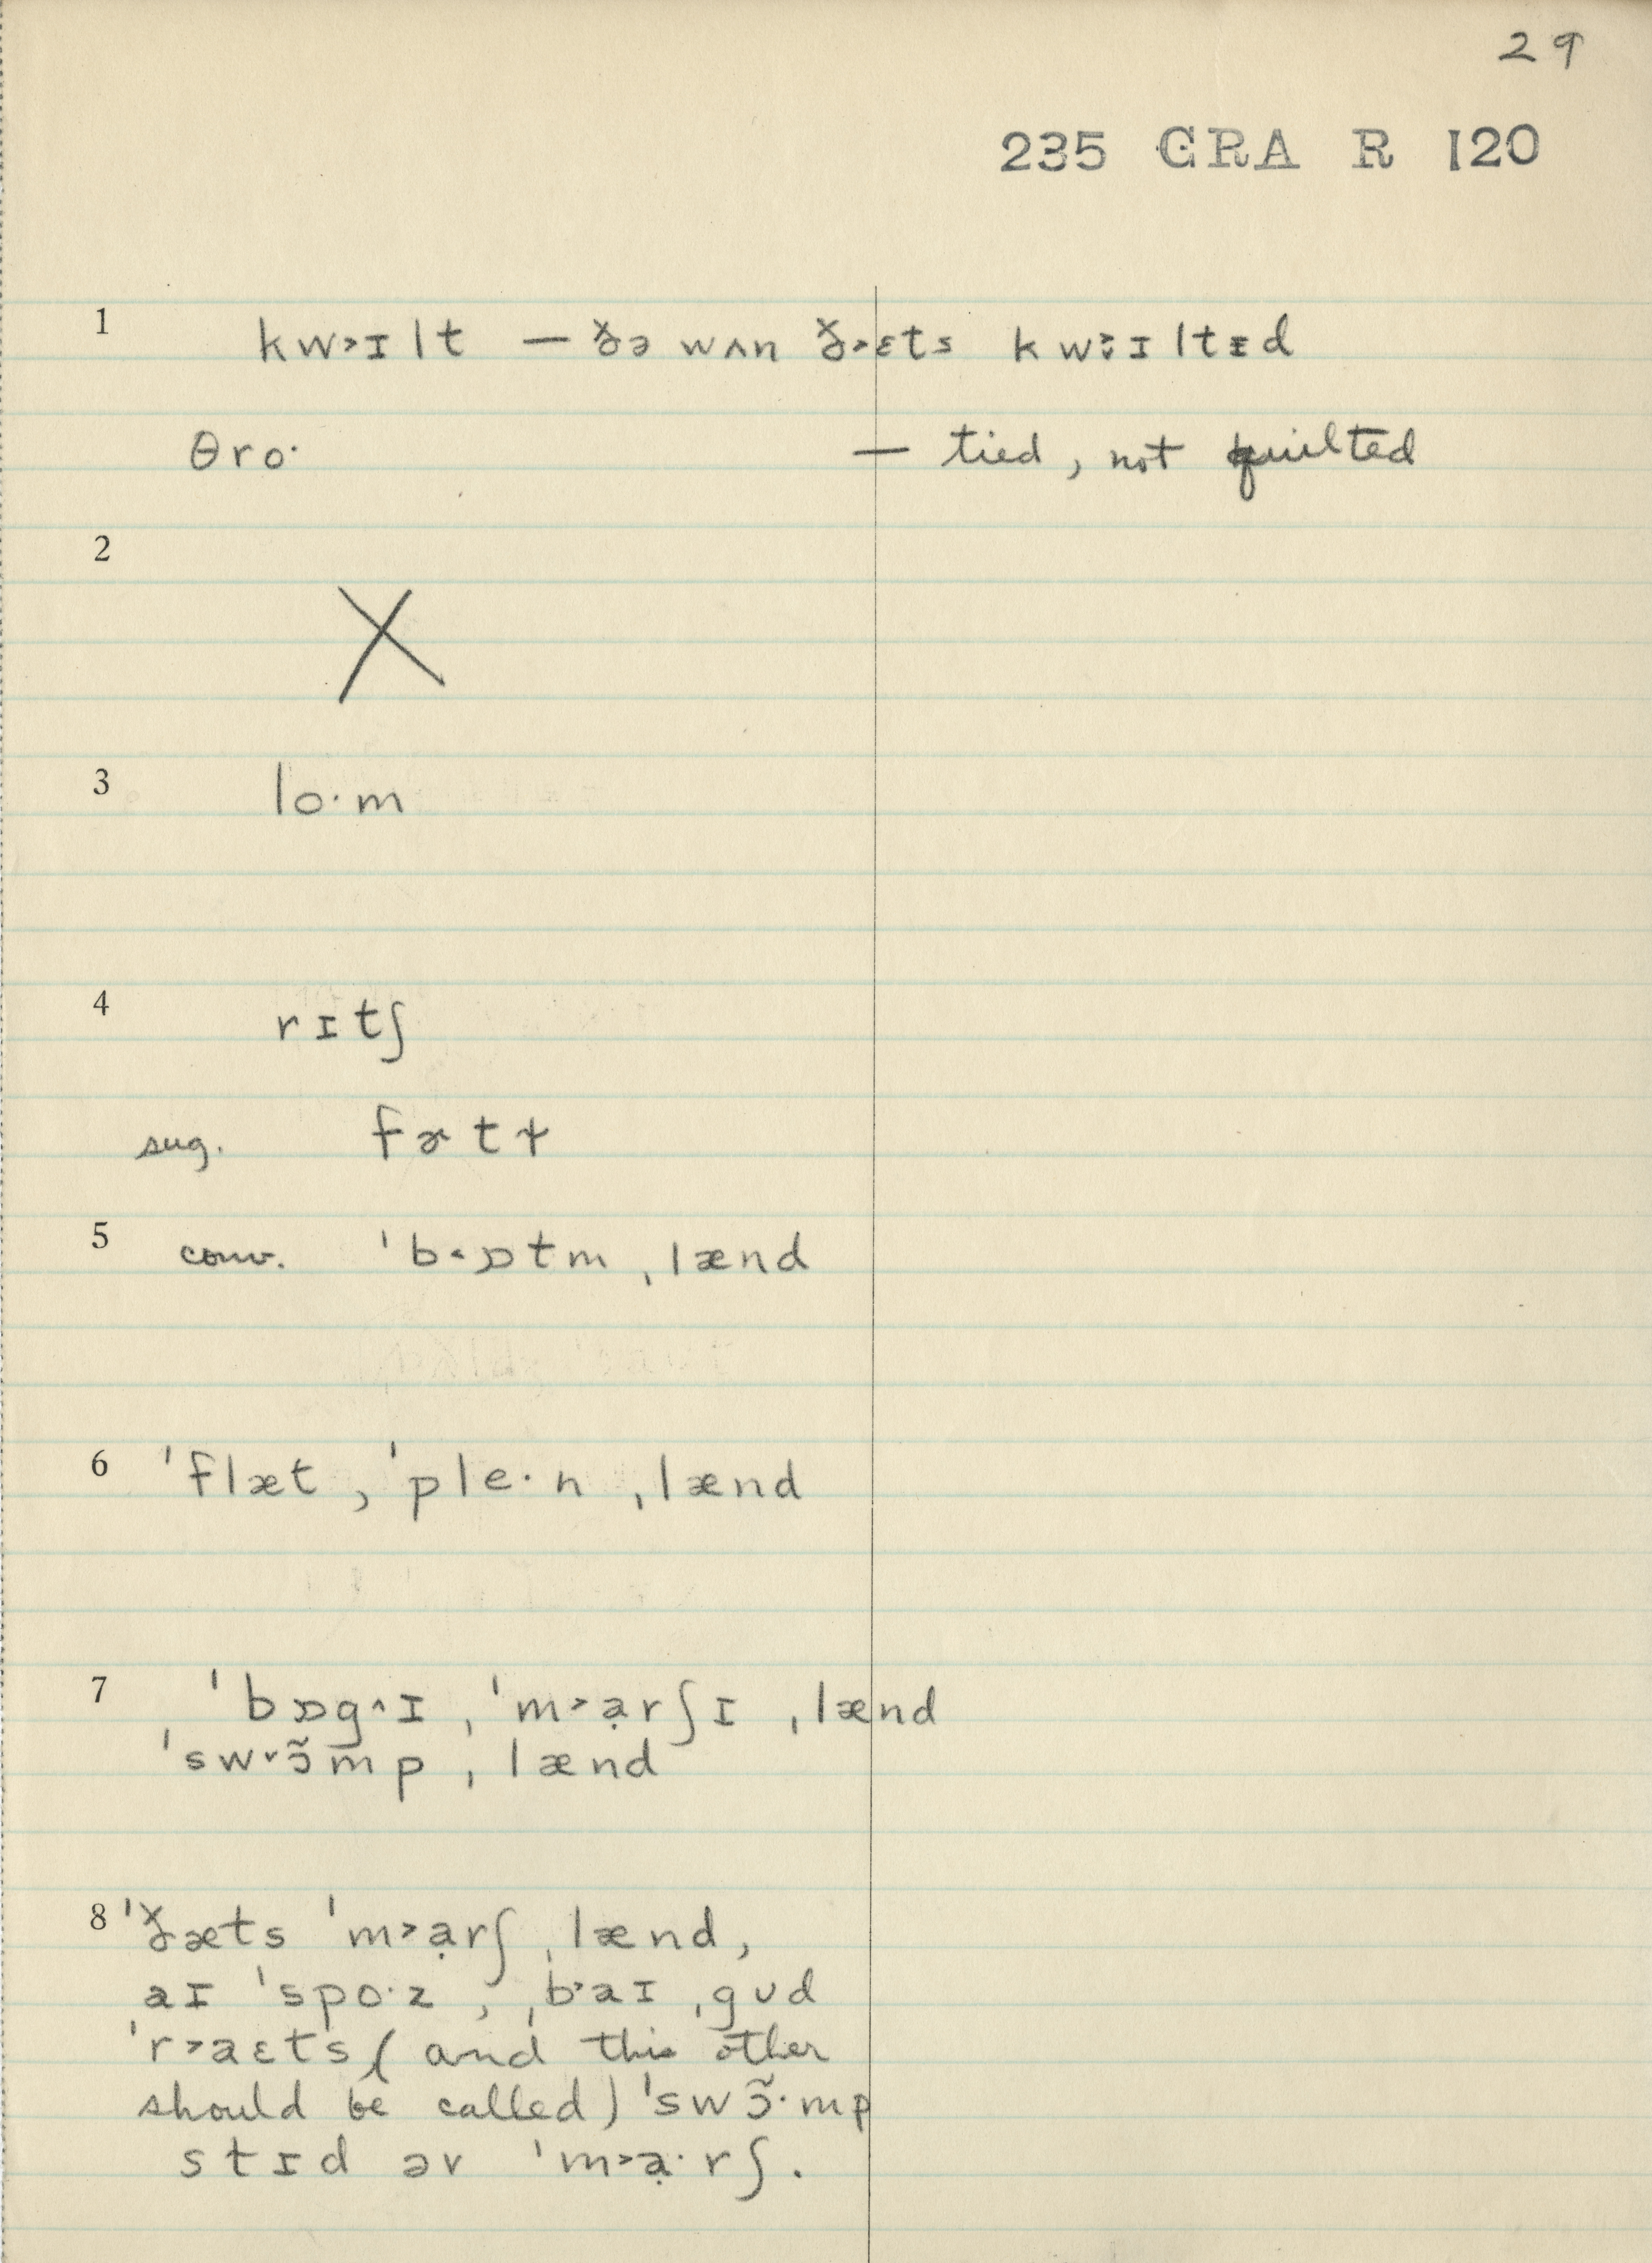 29
235 GRA R 120
1 kw˃ɪlt — ðə wʌn ð˃ɛts kw˃̈ɪltɪd
θro· — tied, not quilted
2 X
3 lo·m
4 rɪtʃ
sug. fɚtɫ
5 conv. ˈb˂ɒtm ˌlænd
6 ˈflæt, ˈple·n ˌlænd
7 ˈbɒg^ɪ, ˈm˃ạrʃɪ ˌlænd
ˈsw˅ɔ̃mp ˌlænd
8 ˈðæts ˈm˃ạrʃ ˌlænd,
aɪ ˈspo·z, ˌb˃aɪ ˌgʊd
ˈr˃aɛts (and this other
should be called) ˈswɔ̃·mp
stɪd əv ˈm˃ạ·rʃ.